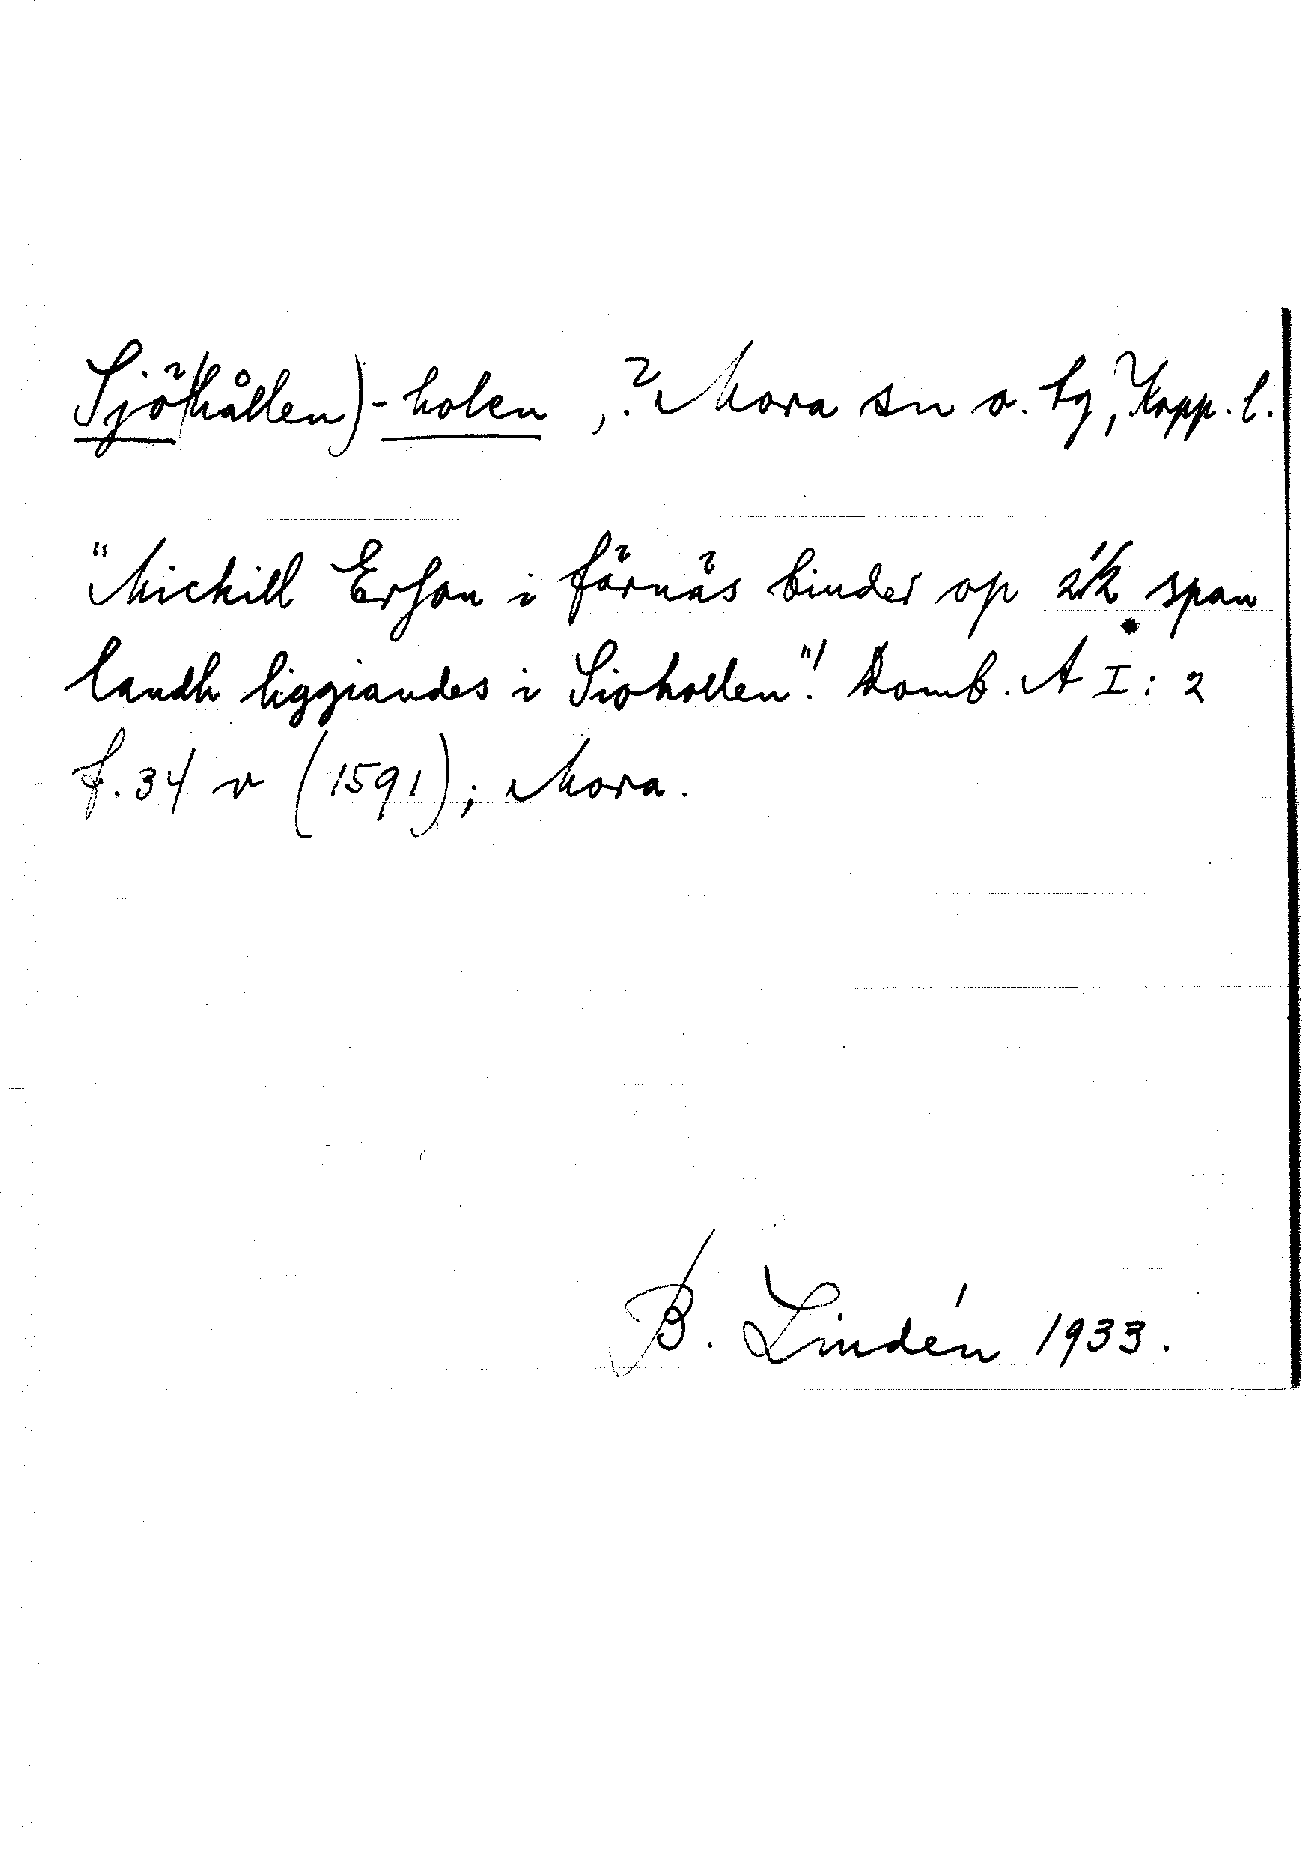 Sjö(hållen)-holen, ? Mora sn o. tg, Kopp. l.
"Mickill Erson i färnäs binder op 2½ span
landh liggiandes i Siohollen"! Domb. A I: 2
f. 34 v (1591); Mora.
B. Lindén 1933.